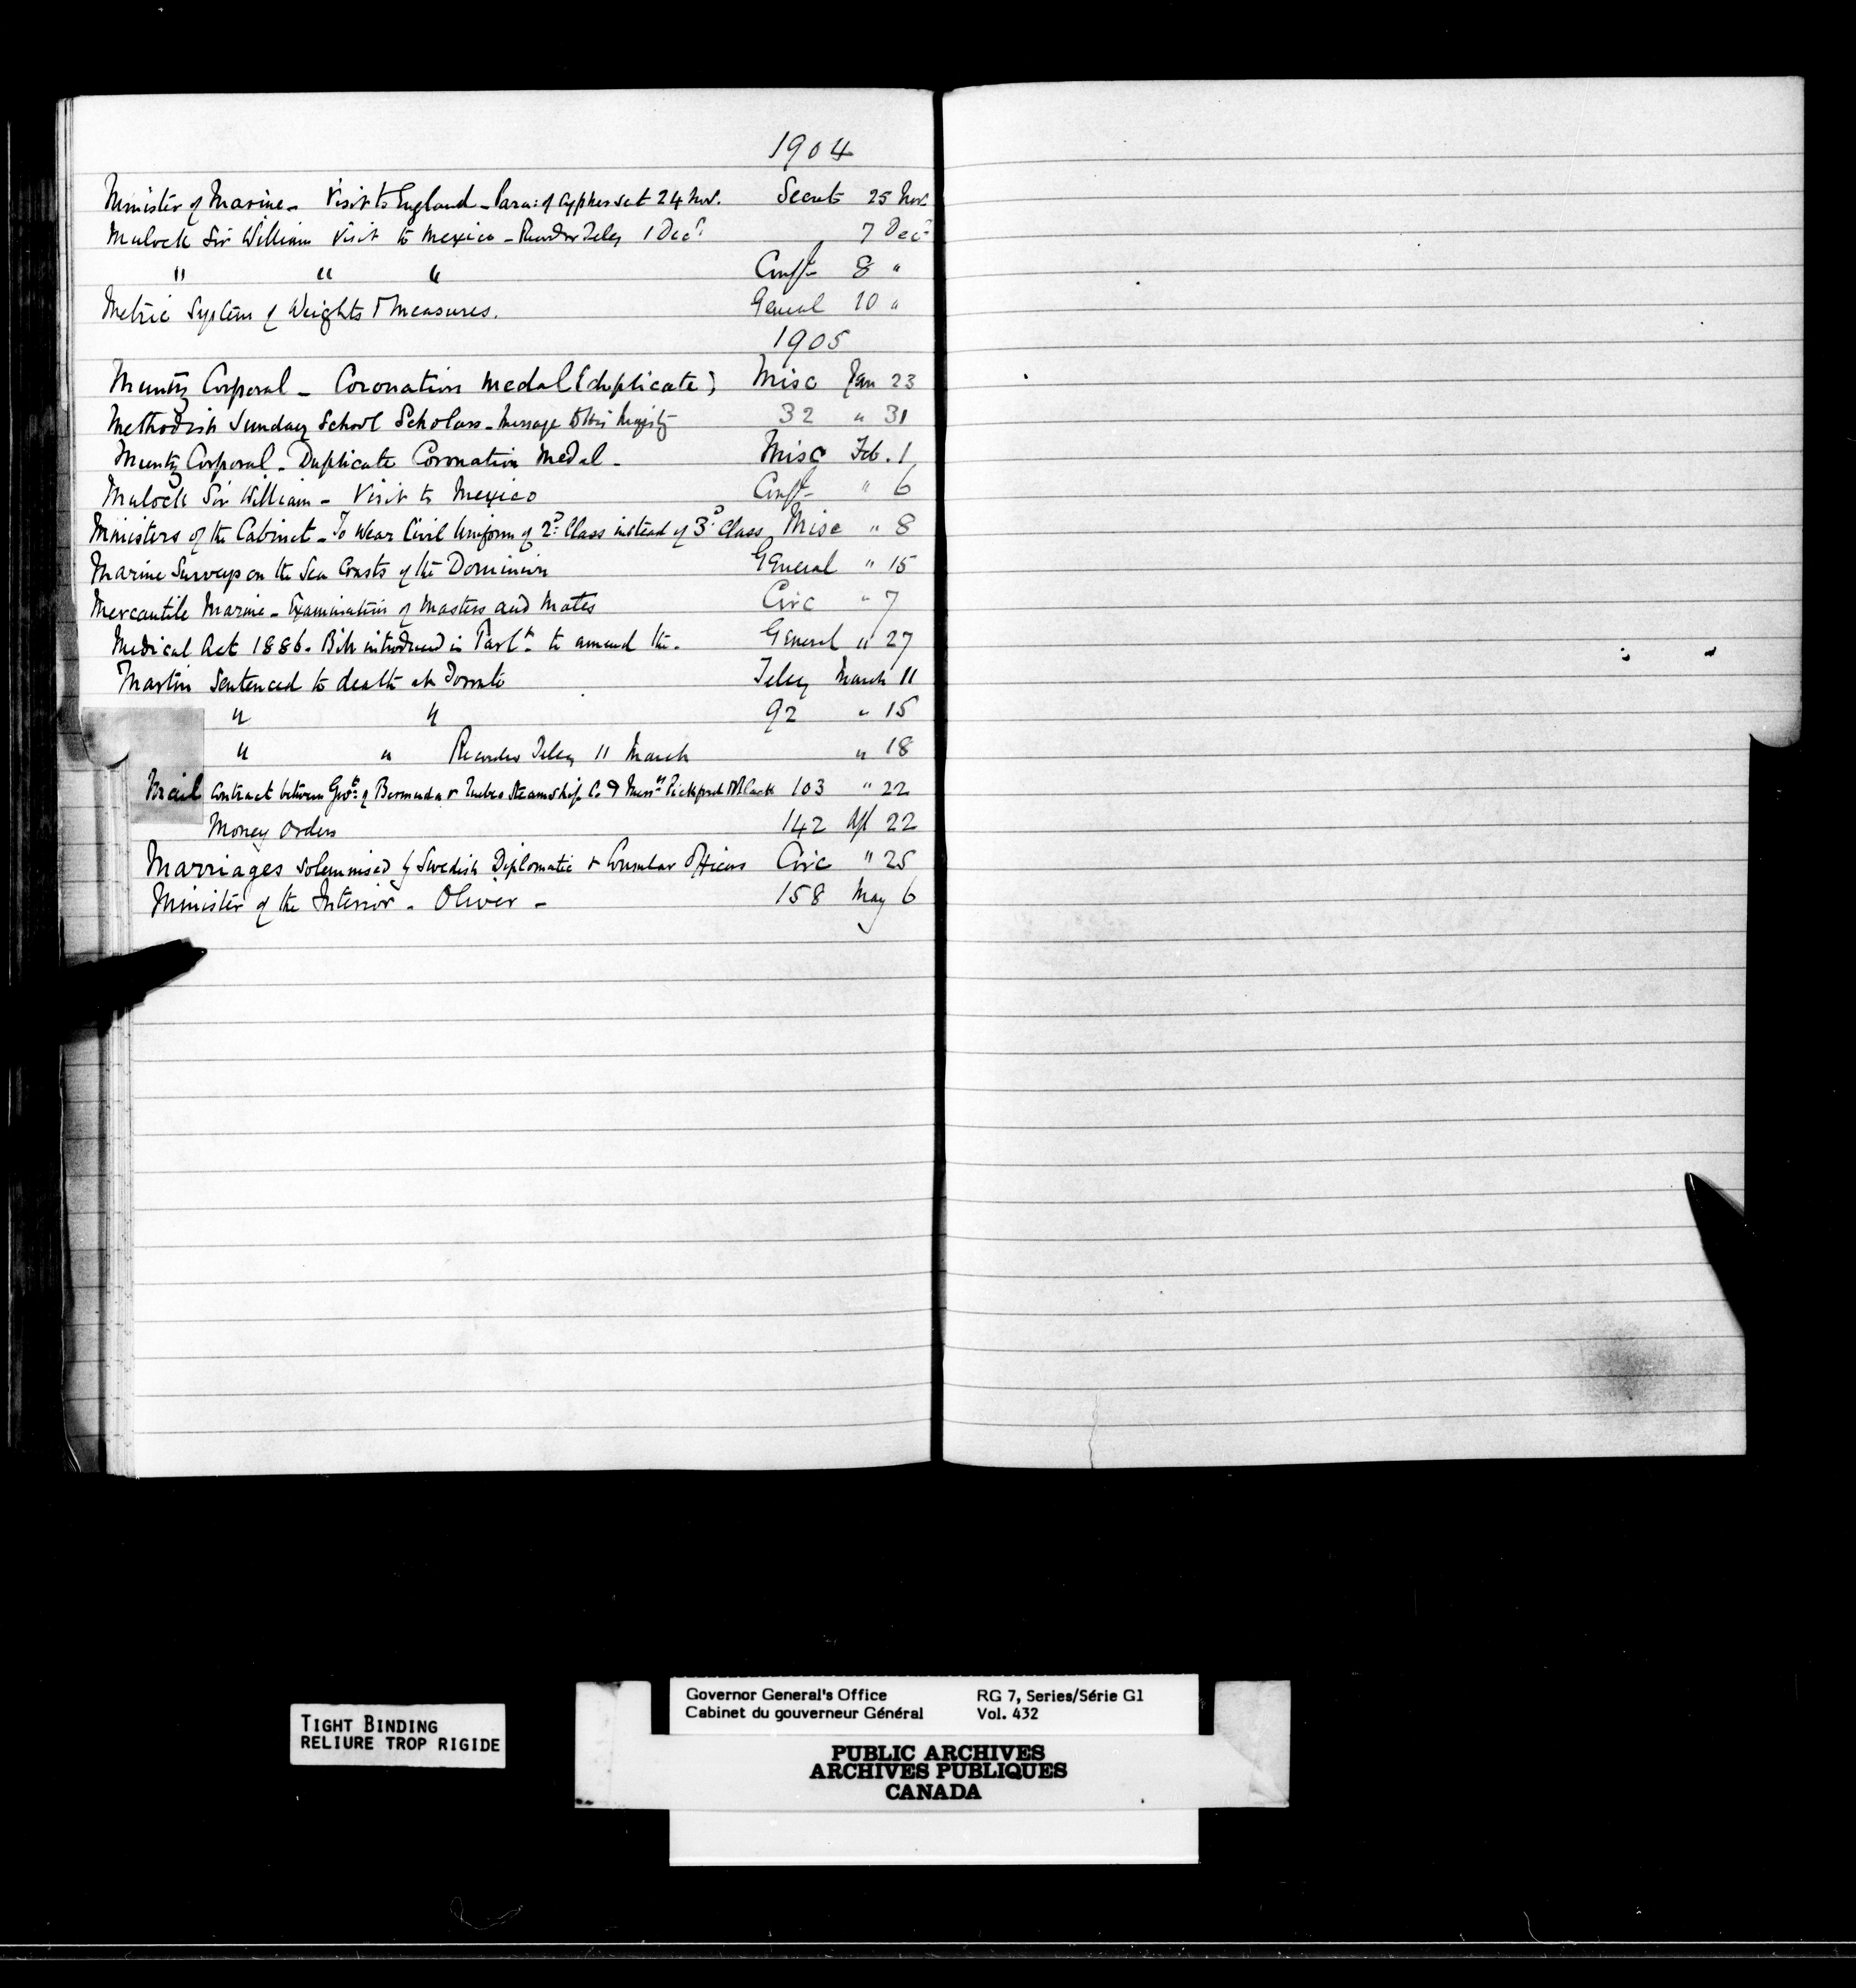 1904
Minister of Marine - Visit to England - Para: of cypher sent 24 Nov. Secret 25 Nov
Mulock Sir William Visit to Mexico - Recorder Teleg 1 Dec. 7 Dec.
" " " Conf. 8 "
Metric System of Weights & Measures. General 10 "
1905
Muntz Corporal - Coronation Medal (duplicate) Misc Jan 23
Methodist Sunday School Scholars - Message to His Majesty 32 " 31
Muntz Corporal - Duplicate Coronation Medal - Misc Feb. 1
Mulock Sir William - Visit to Mexico Conf. " 6
Ministers of the Cabinet - To Wear Civil Uniform of 2d Class instead of 3d Class Misc " 8
Marine Surveys on the Sea Coasts of the Dominion General " 15
Mercantile Marine - Examination of Masters and Mates Circ " 7
Medical Act 1886. Bill introduced in Parlt. to amend the. General " 27
Martin Sentenced to death at Toronto Teleg March 11
" " 92 " 15
" " Recorder Teleg 11 March " 18
Mail Contract between Govt. of Bermuda & Quebec Steamship Co & Messrs Pickford & Black 103 " 22
Money Orders 142 Apl 22
Marriages solemnised by Swedish Diplomatic & Consular Officers Circ " 25
Minister of the Interior - Oliver - 158 May 6
TIGHT BINDING
RELIURE TROP RIGIDE
Governor General's Office RG 7, Series/Série G1
Cabinet du gouverneur Général Vol. 432
PUBLIC ARCHIVES
ARCHIVES PUBLIQUES
CANADA